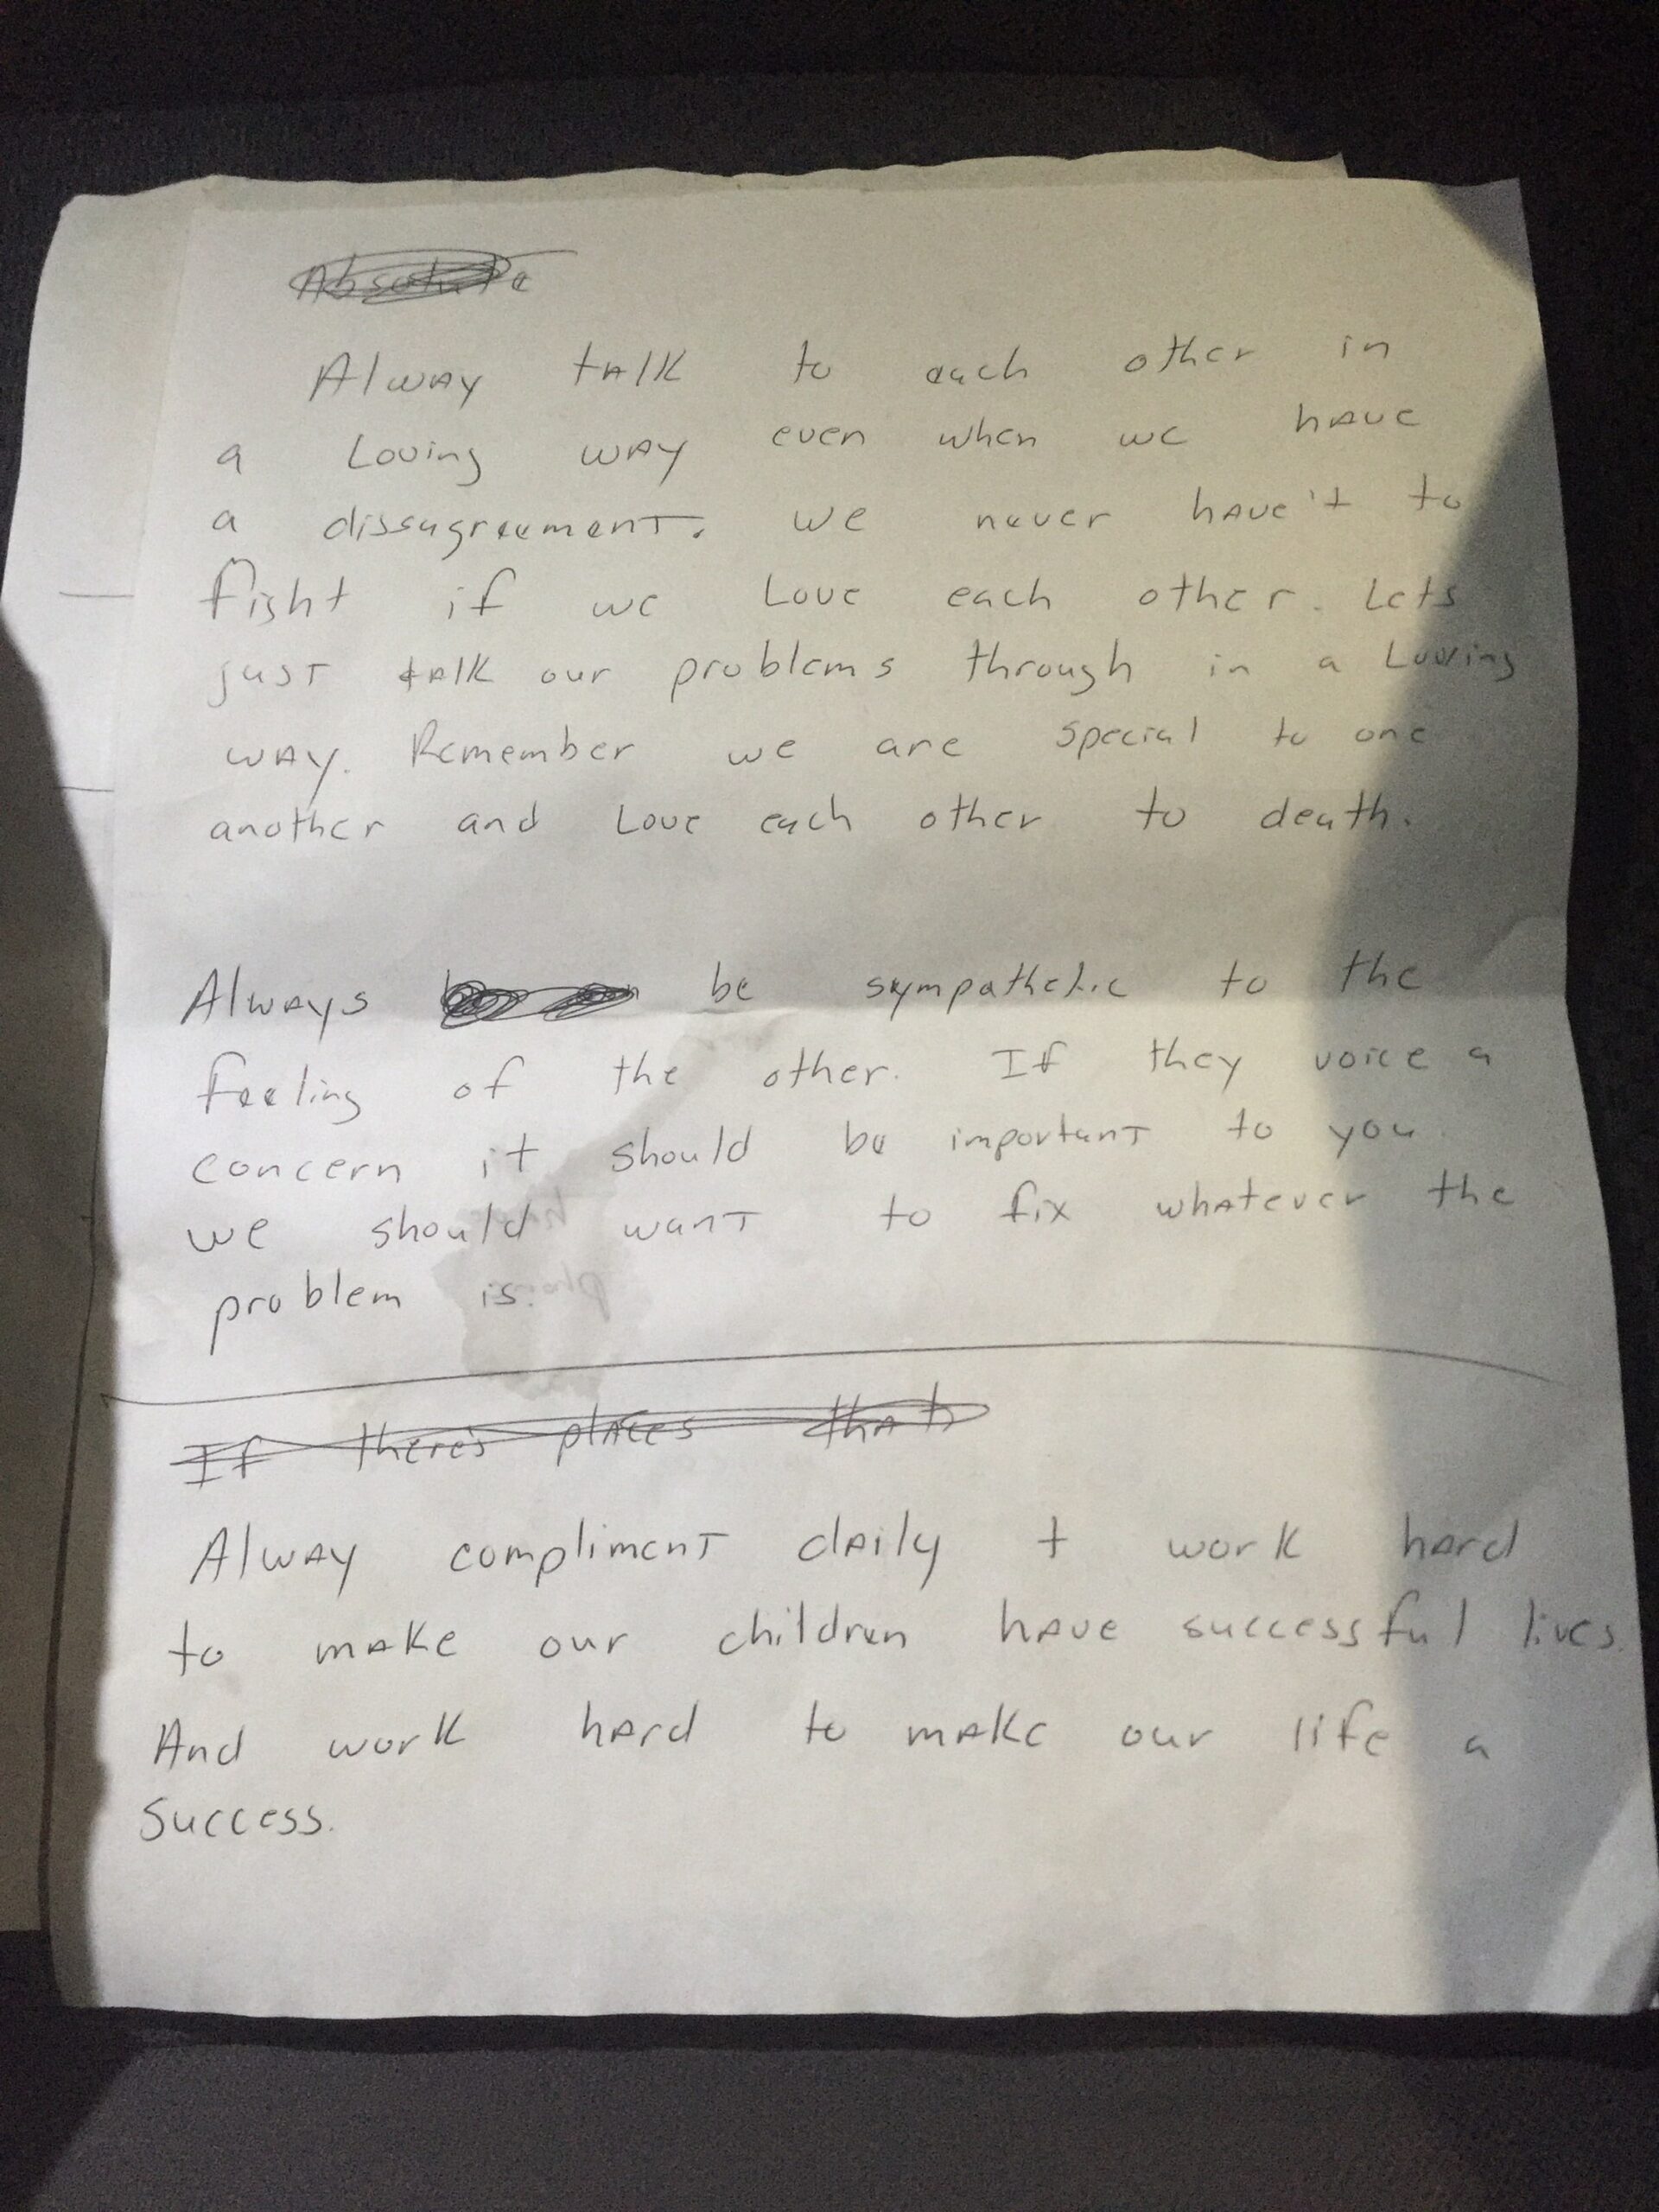 Absolute
Alway talk to each other in
a Loving way even when we have
a dissagreement. we never have't to
fight if we Love each other. Lets
just talk our problems through in a Loving
way. Remember we are special to one
another and Love each other to death.
Always be sympathetic to the
feeling of the other. If they voice a
concern it should be important to you.
we should want to fix whatever the
problem is.
If there's places that
Alway compliment daily + work hard
to make our children have successful lives.
And work hard to make our life a
Success.